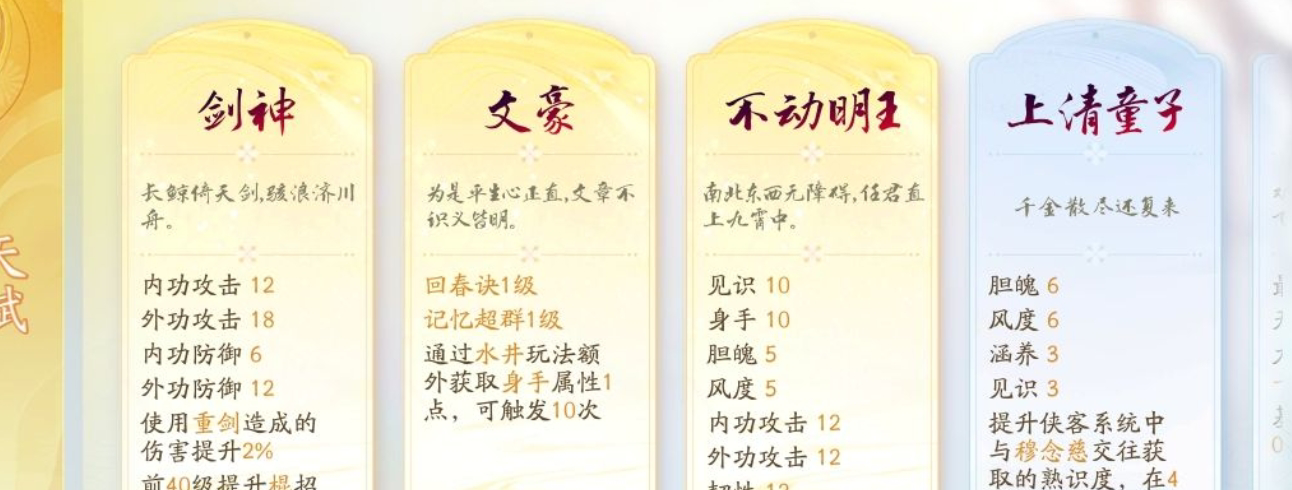 天
试
剑神
长鲸倚天剑,骇浪济川
舟。
内功攻击 12
外功攻击 18
内功防御 6
外功防御 12
使用重剑造成的
伤害提升2%
前40级提升棍招
文豪
为是平生心正直,文章不
识义皆明。
回春诀1级
记忆超群1级
通过水井玩法额
外获取身手属性1
点，可触发10次
不动明王
南北东西无障碍,任君直
上九霄中。
见识 10
身手 10
胆魄 5
风度 5
内功攻击 12
外功攻击 12
韧性 12
上清童子
千金散尽还复来
胆魄 6
风度 6
涵养 3
见识 3
提升侠客系统中
与穆念慈交往获
取的熟识度，在4